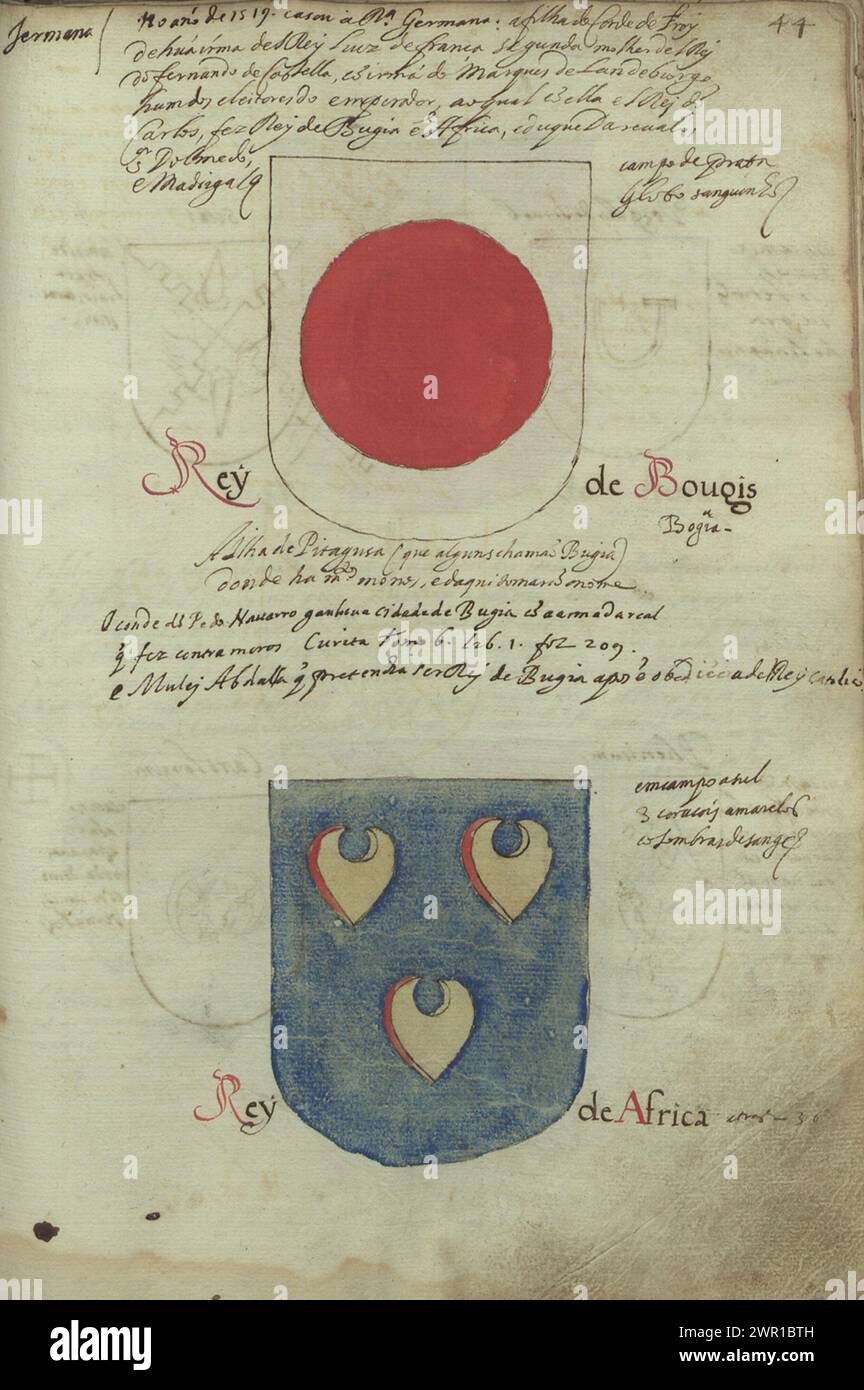 44
Jermana
No año de 1519. casou a Rª Germana. a filha do Conde de Froy
de húa irma del Rey Luiz de frança segunda molher del Rey
do fernando de Castella, cõ irmã do Marques de Landeborgo
hum dos eleitores do emperador, ao qual cõ ella el Rey dõ
Carlos, fez Rey de Bugia é Africa, e duque
Dolmedo,
e Madrigal
campo de prata
Globo sanguinho
Rey de Bougis
Bogia
A Ilha de Pitagusa (que alguns chamã Bugia)
donde ha mtos monos, e daqui tomarõ o nome
O conde dõ Pedro Navarro ganhou a cidade de Bugia cõ a armada real
q̃ fez contra moros Curita tomo 6. lib. 1. fol 209.
e Muley Abdalla q̃ pretendia ser Rey de Bugia a obediẽcia del Rey Catolico
em campo asul
3 coraçois amarelos
cõ sombras de sange
Rey de Africa
alamy
Image ID: 2WR1BTH
www.alamy.com